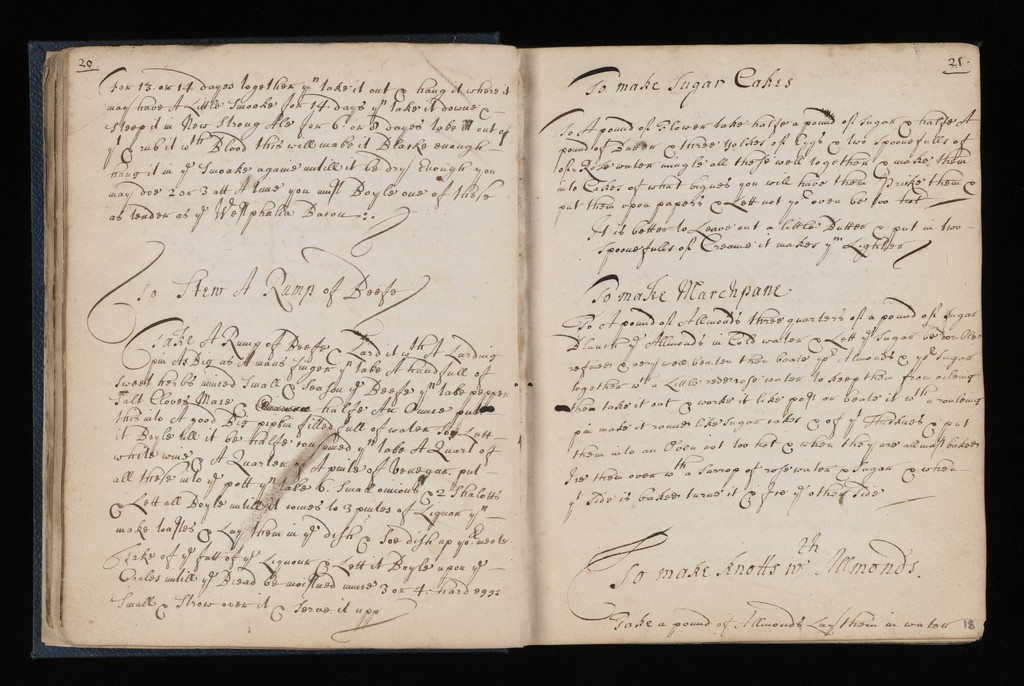 20
For 13 or 14 dayes together yn take it out & hang it where it
may have A Little Smoake for 14 days yn take it downe &
steep it in New Strong Ale for 6 or 8 dayes take it out of
yt & rub it wth Blood this will make it Blacke enough
hang it in ye Smoake againe untill it be dry Enough you
may doe 2 or 3 att A time you must Boyle one of these
as tender as ye Westphalia Bacon
To Stew A Rump of Beefe
Take A Rump of Beefe & Lard it wth A Larding
pin As Big as A mans finger yn take A handfull of
sweet herbs minced Small & Season ye Beefe yn take pepper
Salt Cloves Mace & halfe An Ounce put
this into A good Big pipkin filled full of water Soe Lett
it Boyle till it be halfe consumed yn take A Quart of
white wine & A Quarter of A pinte of venegar put
all these into ye pott yn take 6 Small onions & 2 Shalotts
& Lett all Boyle untill it comes to 3 pintes of Liquor yn
make toastes & Lay them in ye dish & Soe dish up yor meate
take of ye fatt of ye Liquour & Lett it Boyle upon ye
Coales untill ye Bread be moistned mince 3 or 4 hard eggs
Small & Strow over it & Serve it upp
21.
To make Sugar Cakes
To A pound of Flower take halfe a pound of Sugar & halfe A
pound of Butter & three yolkes of Eggs & two Spoonefulls of
of Rose water mingle all these well together & make them
into Cakes of what bignes you will have them Prike them &
put them upon papers & Lett not ye oven be too hot
It is better to Leave out a little Butter & put in two
Spoonefulls of Creame it makes ym Lighter
To make Marchpane.
To A pound of Allmonds three quarters of a pound of Sugar
Blanch ye Allmonds in Cold water & Lett ye Sugar be double
refined & very well beaten then beate ye Almonds & ye Sugar
together wth a Little rose water to keep them from oileing
then take it out & worke it like past or beate it wth a rouleing
pin make it round like Sugar cakes & of ye Thicknes & put
them into an Oven not too hot & when they are allmost baked
Ice them over wth a Sirrop of rose water & Sugar & when
ye Side is baked turne it & Ice ye other Side
To make Knotts wth Allmonds.
Take a pound of Allmonds Lay them in water
18